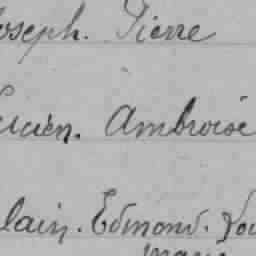 oseph. Pierre
ucien. Ambroise
lain. Edmond. Lou